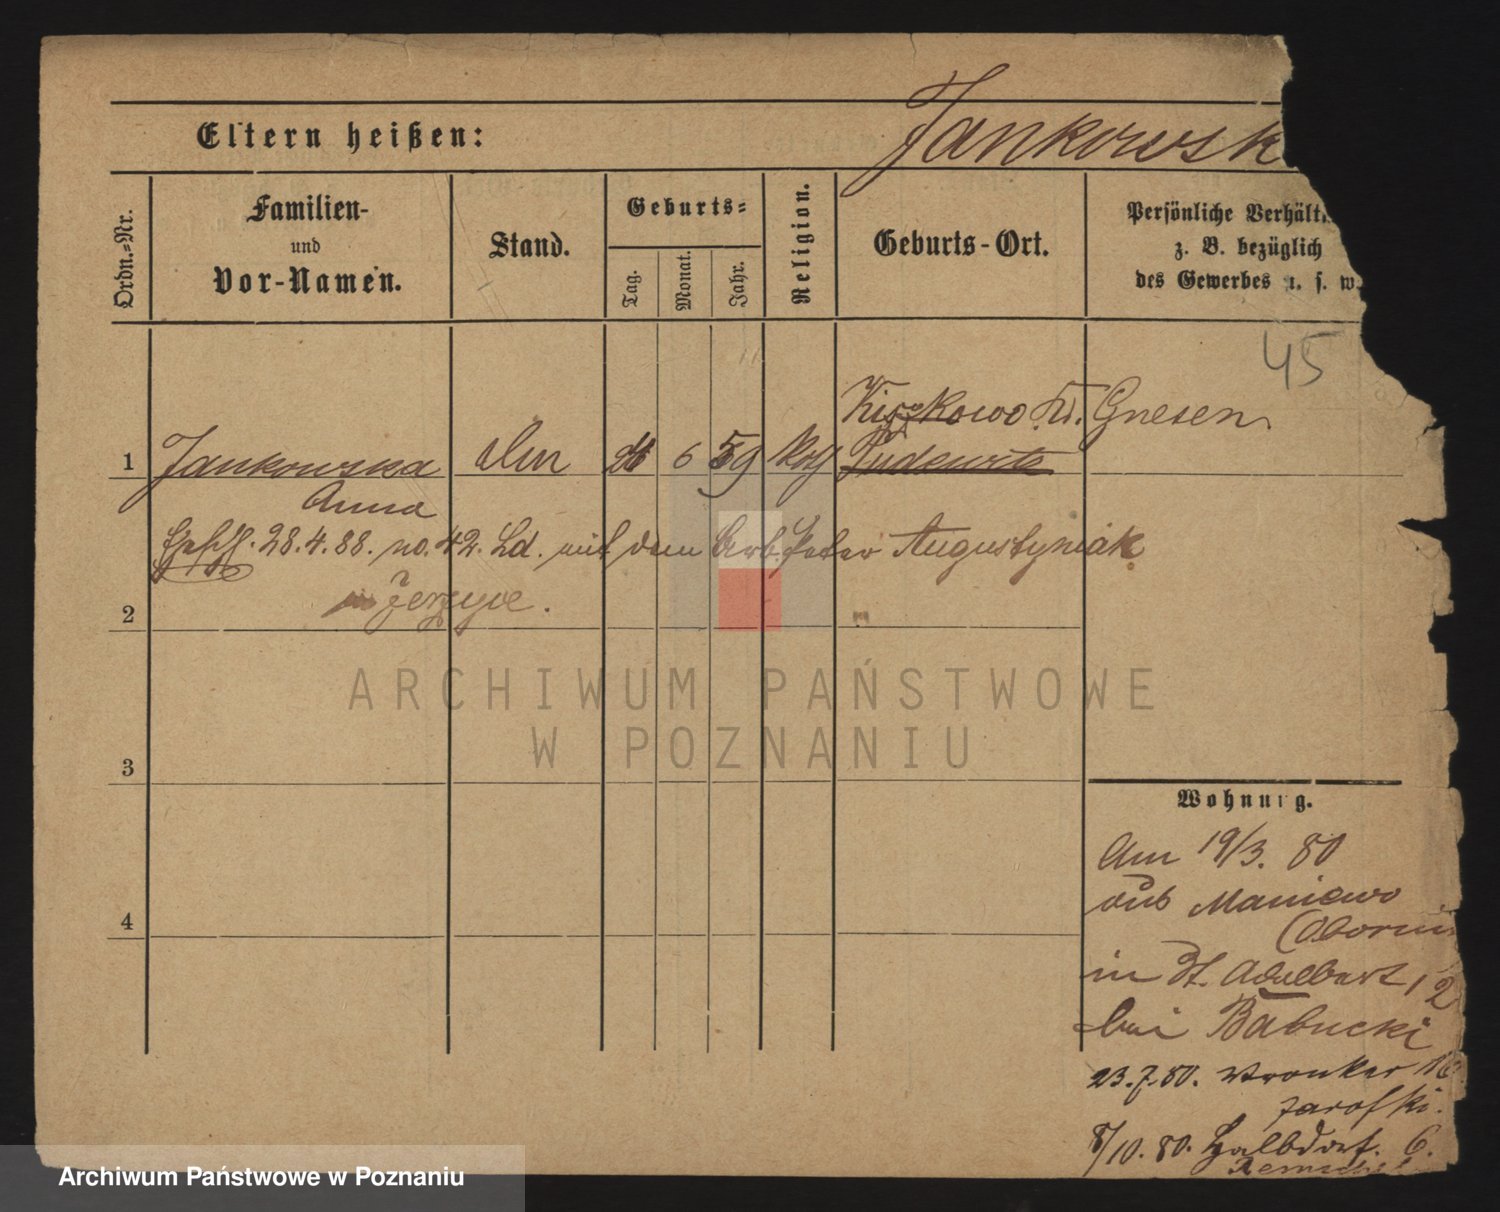 Jankowsk
Eltern heißen:
Ordn.-Nr.
Familien-
und
Vor-Namen.
Stand.
Geburts-
Tag.
Monat.
Jahr.
Religion.
Geburts-Ort.
Persönliche Verhält
z. B. bezüglich
des Gewerbes u. s. w.
45
Kiszkowo Kr. Gnesen
1 Jankowska 6 59 Pudewitz
Anna
28.4.88. no. 42. Ld. mit dem Arb. Peter Augustyniak
in Jerzyce.
2
3
4
Wohnung.
Am 19/3. 80
aus Maniewo
(Oborni
in St. Adelbert 12
bei Babucki
23.7.80. Wronker 16
8/10. 80. Halbdorf. 6.
ARCHIWUM PAŃSTWOWE
W POZNANIU
Archiwum Państwowe w Poznaniu